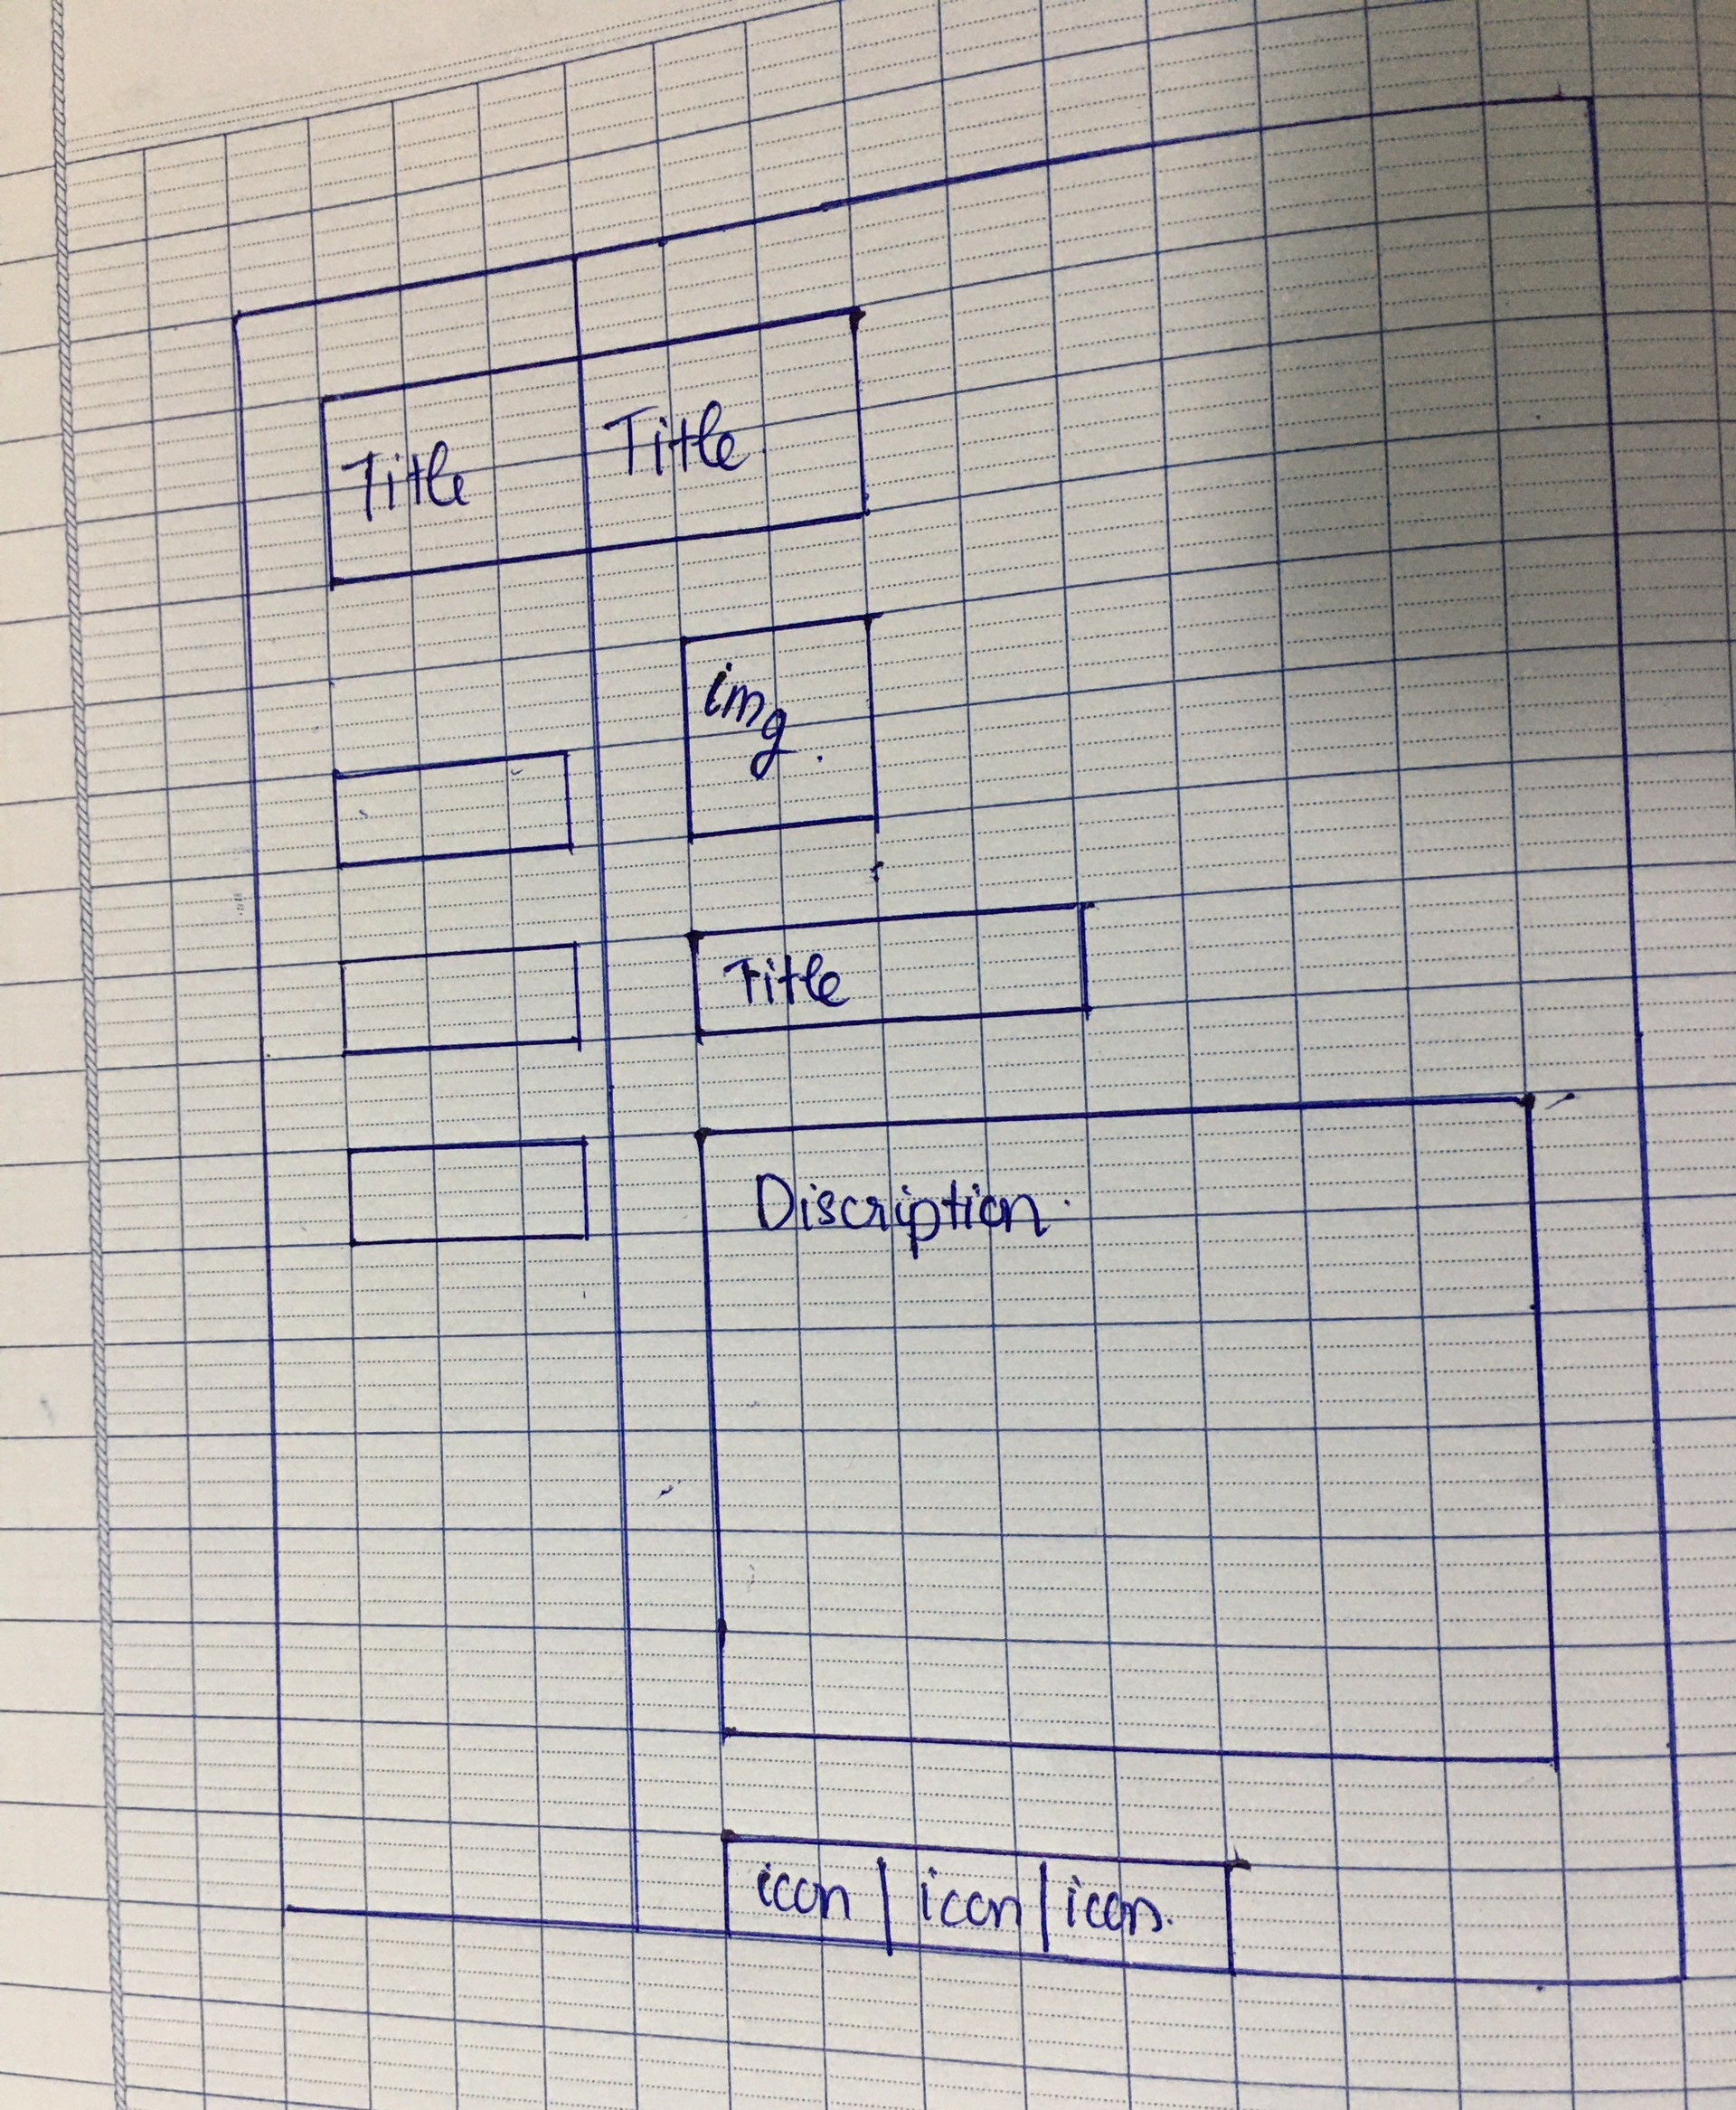 Title Title
img.
Title
Discription.
icon | icon | icon.